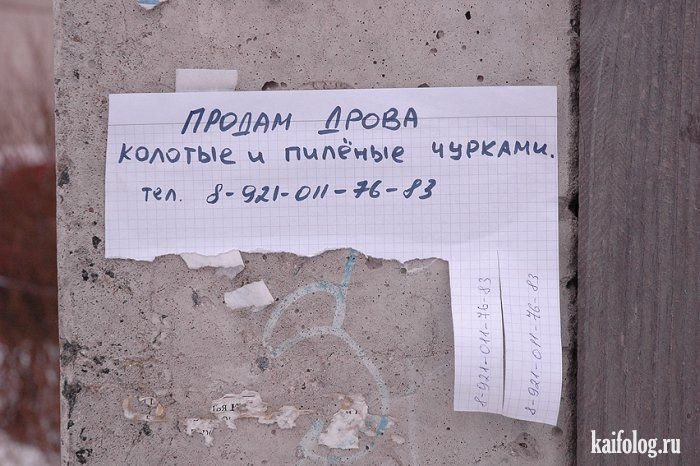 ПРОДАМ ДРОВА
КОЛОТЫЕ И ПИЛЁНЫЕ ЧУРКАМИ.
тел. 8-921-011-76-83
8-921-011-76-83
8-921-011-76-83
kaifolog.ru